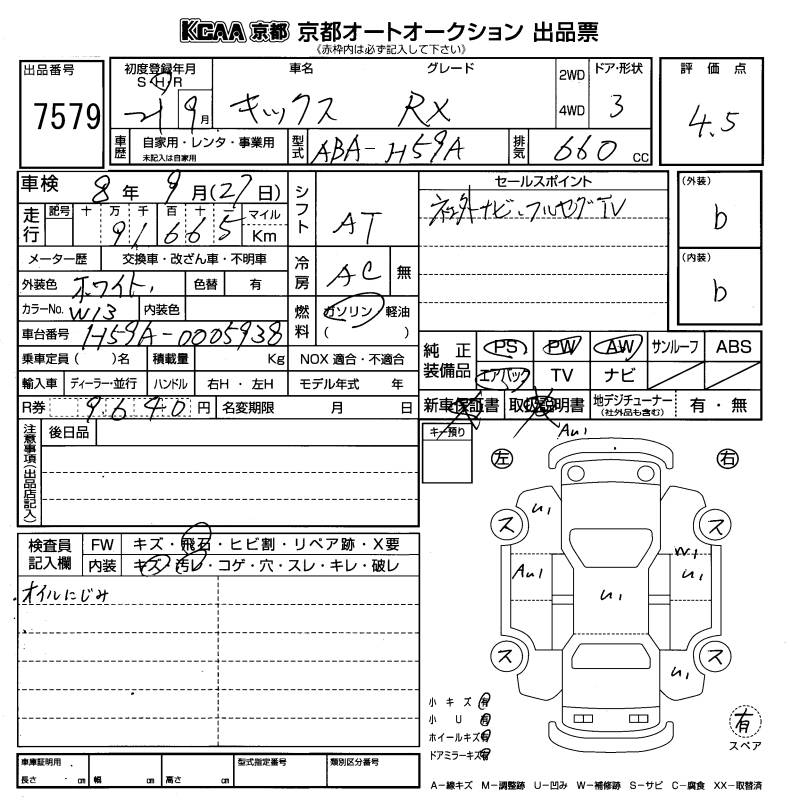 KCAA 京都 京都オートオークション 出品票
《赤枠内は必ず記入して下さい》
出品番号
7579
初度登録年月 車名 グレード
S H R
21 9月 キックス RX
2WD
4WD
ドア・形状
3
評価点
4.5
車歴 自家用・レンタ・事業用
未記入は自家用
型式 ABA-H59A
排気 660 CC
車検 8年 9月(27日)
走行 記号 十 万 千 百 十 一 マイル
91665 Km
メーター歴 交換車・改ざん車・不明車
外装色 ホワイト 色替 有
カラーNo. W13 内装色
車台番号 H59A-0005938
乗車定員( )名 積載量 Kg NOX 適合・不適合
輸入車 ディーラー・並行 ハンドル 右H・左H モデル年式 年
R券 9640円 名変期限 月 日
シフト AT
冷房 AC 無
燃料 ガソリン 軽油
( )
セールスポイント
社外ナビ・フルセグTV
(外装)
b
(内装)
b
純正装備品 PS PW AW サンルーフ ABS
エアバック TV ナビ
新車保証書 取扱説明書 地デジチューナー(社外品も含む) 有・無
注意事項(出品店記入) 後日品
キー預り
検査員記入欄 FW キズ・飛石・ヒビ割・リペア跡・X要
内装 キズ・汚レ・コゲ・穴・スレ・キレ・破レ
オイルにじみ
左 右
AU1
U1
ス ス
W1
AU1 U1
U1
ス ス
U1
小キズ 有
小U 有
ホイールキズ 有
ドアミラーキズ 有
有
スペア
車庫証明用 型式指定番号 類別区分番号
長さ cm 幅 cm 高さ cm
A－線キズ M－調整跡 U－凹み W－補修跡 S－サビ C－腐食 XX－取替済